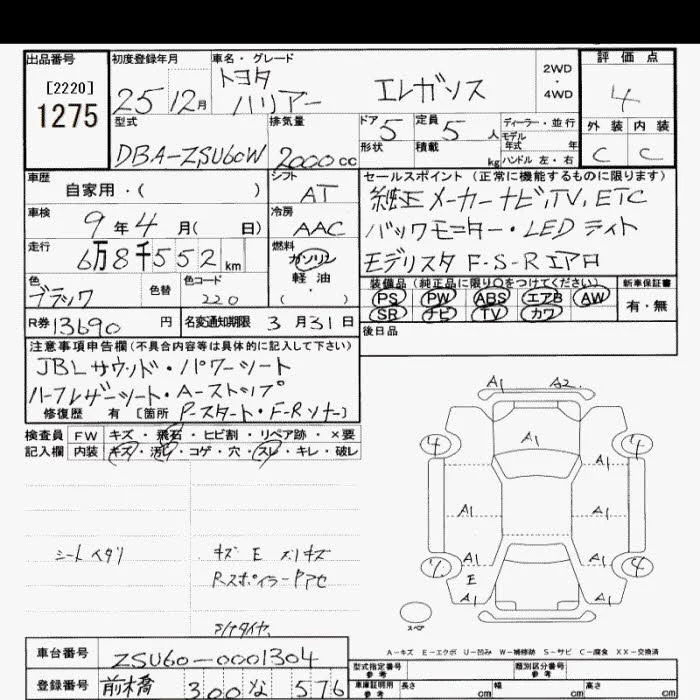 出品番号
[2220]
1275
初度登録年月
25 12月
車名・グレード
トヨタ
ハリアー エレガンス
2WD
・
4WD
評価点
4
外装 内装
C C
型式
DBA-ZSU60W
排気量
2000cc
ドア 5
形状
定員 5 人
積載 kg
ディーラー・並行
モデル
年式 年
ハンドル 左・右
車歴
自家用・( )
シフト
AT
車検
9年4月( 日)
冷房
AAC
走行
6万8千552km
燃料
ガソリン
軽油
( ・ )
色
ブラック
色替
色コード
220
R券 13690 円
名変通知期限 3月31日
セールスポイント(正常に機能するものに限ります)
純正メーカーナビ,TV,ETC
バックモニター・LEDライト
モデリスタF-S-Rエアロ
装備品(純正品に限り○をつけてください)
PS PW ABS エアB AW
SR ナビ TV カワ
新車保証書
有・無
後日品
注意事項申告欄(不具合内容等は具体的に記入して下さい)
JBLサウンド・パワーシート
ハーフレザーシート・A-ストップ
修復歴 有 [箇所 P-スタート・F-Rソナー]
検査員 FW キズ・飛石・ヒビ割・リペア跡・×要
記入欄 内装 キズ・汚レ・コゲ・穴・スレ・キレ・破レ
シートイタリ
キズ E スリキズ
Rスポイラー アセ
A1 A2
4 A1 4
A1 A1 A1
A1 A1
E 4
A1 A1
スペア
A-キズ E-エクボ U-凹み W-補修跡 S-サビ C-腐食 XX-交換済
車台番号 ZSU60-0001304
登録番号 前橋 300 576
型式指定番号
参考
類別区分番号
参考
車庫証明用
参考
長さ cm 幅 cm 高さ cm